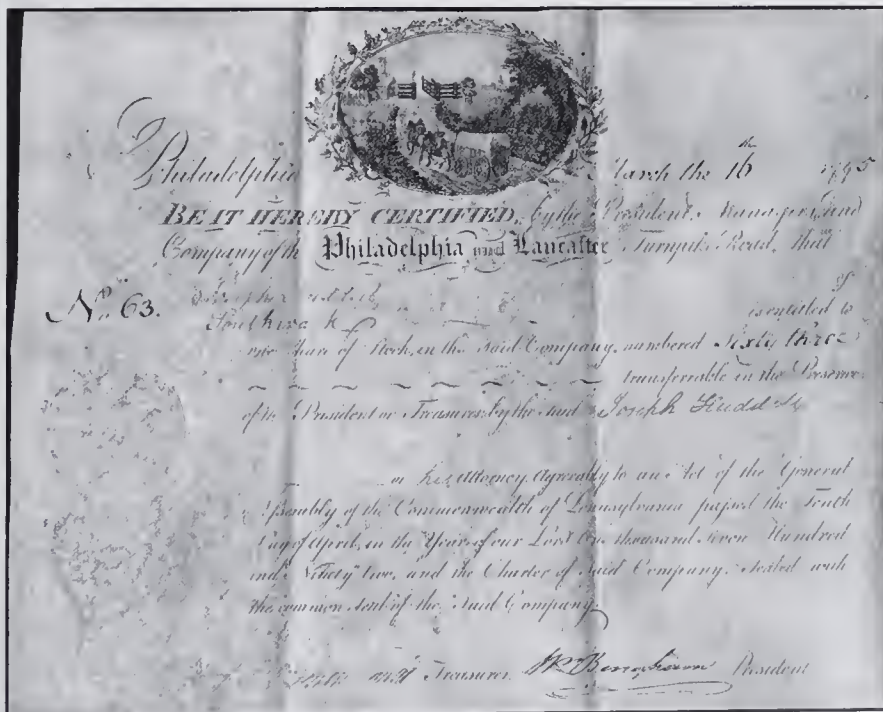 Philadelphia March the 16th 1795
BE IT HEREBY CERTIFIED, by the President, Managers, and
Company of the Philadelphia and Lancaster Turnpike Road, that
of
No. 63. Southwark is entitled to
one Share of Stock, in the said Company, numbered Sixty three
transferable in the Presence
of the President or Treasurer, by the said Joseph
or his Attorney. Agreeably to an Act of the General
Assembly of the Commonwealth of Pennsylvania passed the Ninth
Day of April, in the Year of our Lord One thousand seven Hundred
and Ninety two, and the Charter of said Company. Sealed with
the common seal of the said Company.
Treasurer. Wm Bingham President